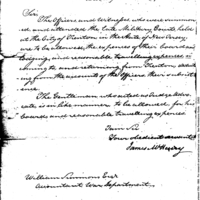 Sir
The Officers and Witnesses who were summon
ed and attended the late Military Courts held
at the City of Trenton in the State of New Jersey
are to be allowed, the expenses of their board and
lodging, and reasonable travelling expenses in
coming to and returning from Trenton, deduct
ing from the accounts of the Officers their subsist
ence.
The Gentleman who acted as Judge Advo
cate is in like manner to be allowed for his
boards and reasonable travelling expenses
I am Sir
Your obedient servant
James McHenry
William Simmons Esqr
Accountant War Department